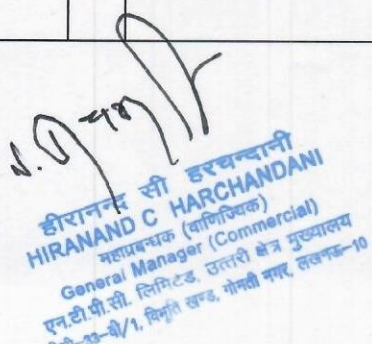 हीरानन्द सी हरचन्दानी
HIRANAND C HARCHANDANI
महाप्रबन्धक (वाणिज्यिक)
General Manager (Commercial)
एन.टी.पी.सी. लिमिटेड, उत्तरी क्षेत्र मुख्यालय
33-बी/1, विभूति खण्ड, गोमती नगर, लखनऊ-10